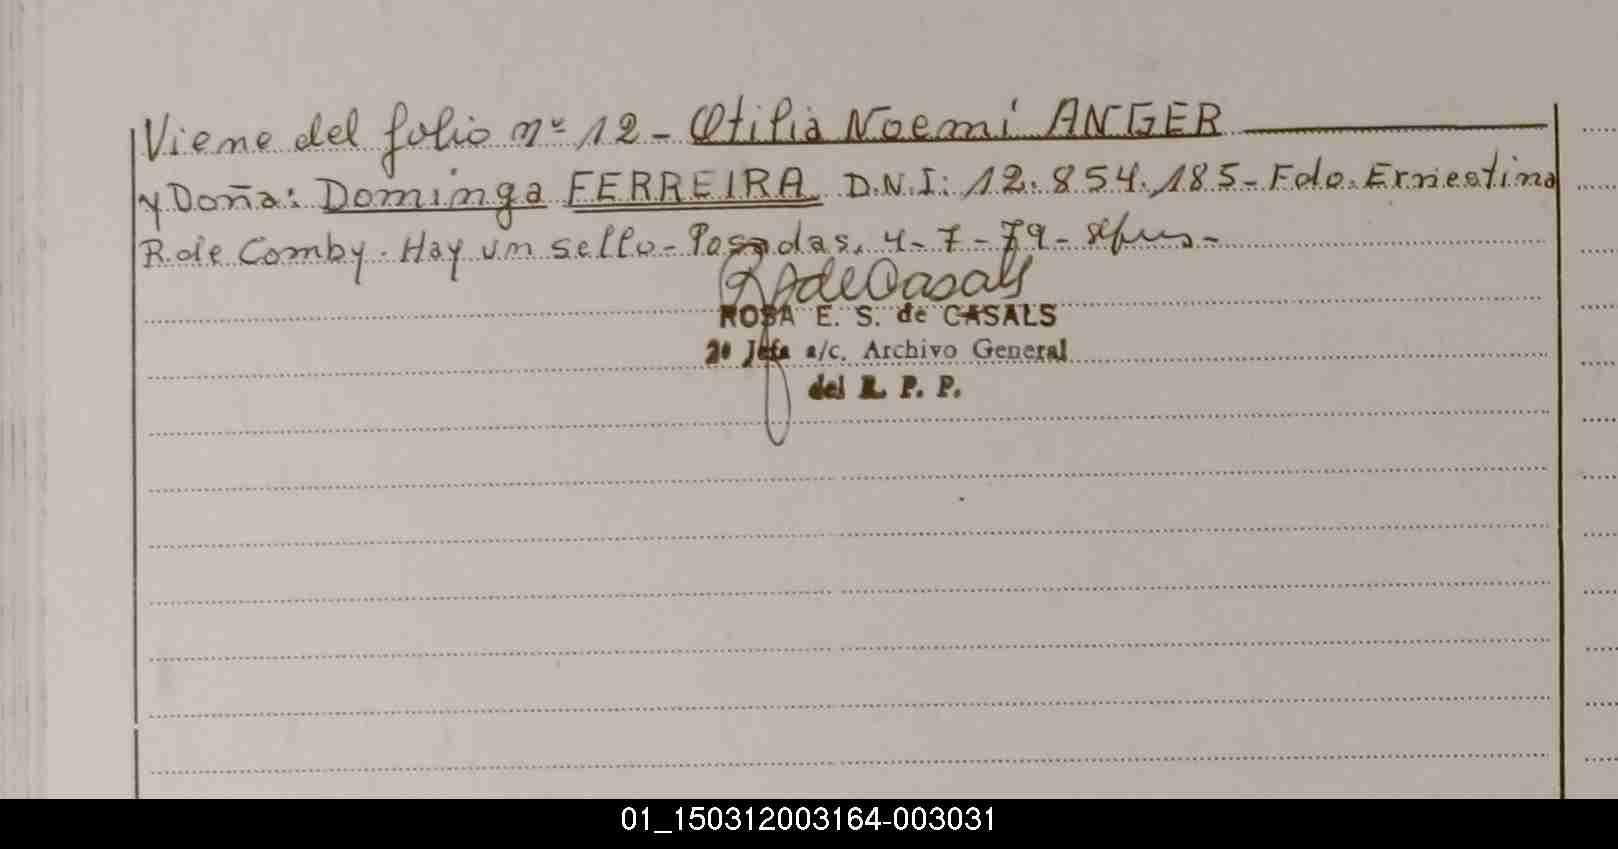 Viene del folio nº 12 - Otilia Noemi ANGER
y Doña: Dominga FERREIRA D.N.I: 12.854.185 - Fdo. Ernestina
R. de Comby. Hay un sello - Posadas, 4 - 7 - 79 -
R S de Casals
ROSA E. S. de CASALS
2º Jefa a/c. Archivo General
del R. P. P.
01_150312003164-003031